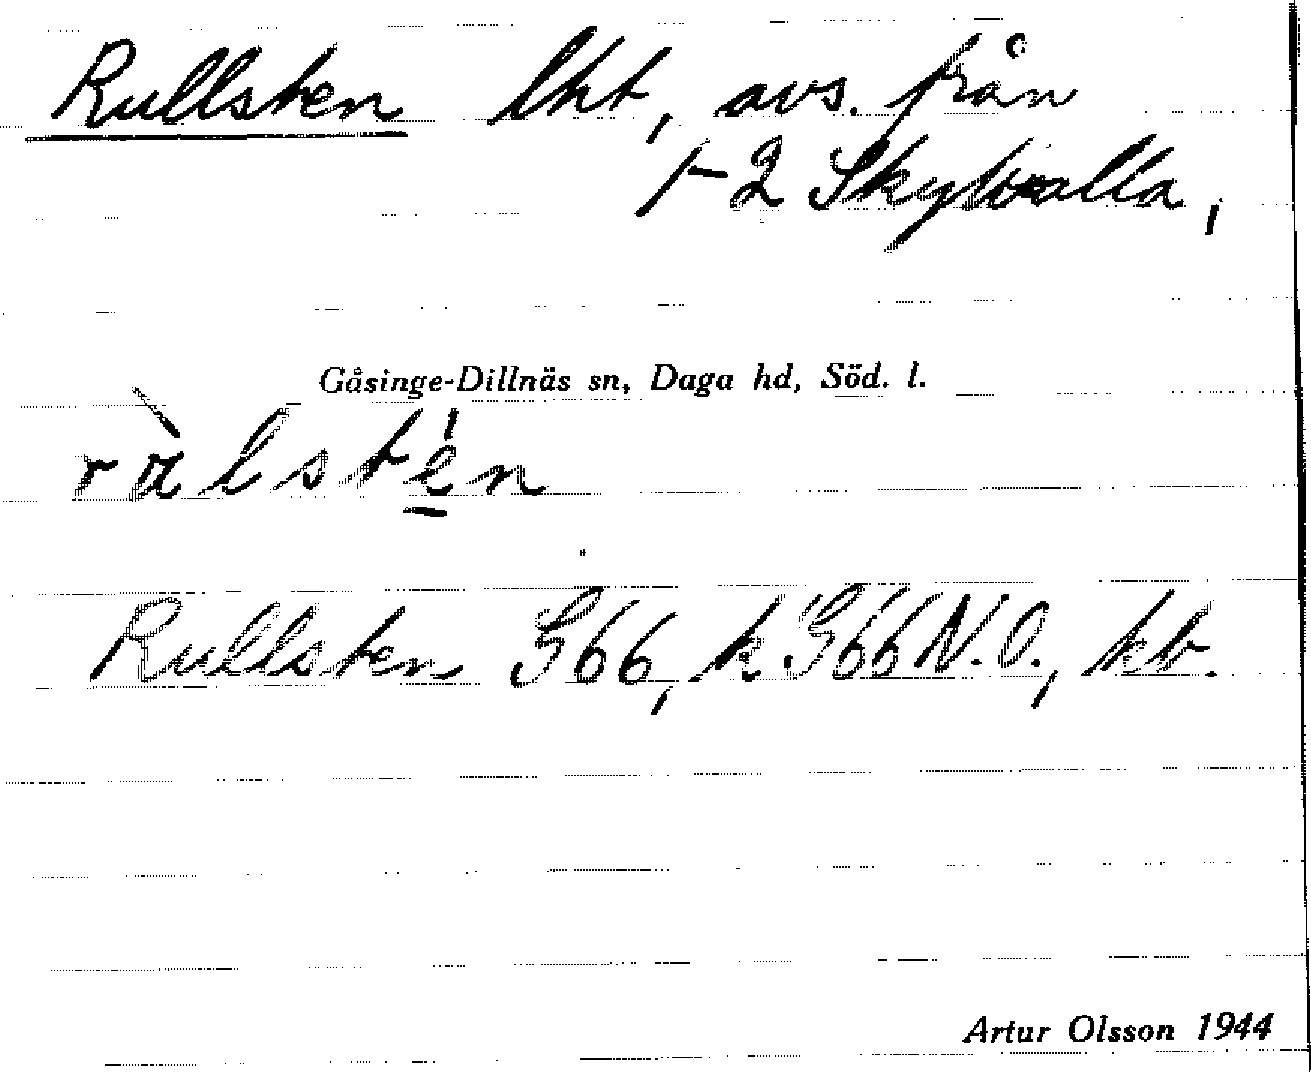 Rullsten lht, avs. från
1-2 Skyttvalla,
Gåsinge-Dillnäs sn, Daga hd, Söd. l.
Rullsten G66, k G66 N.O., kb.
Artur Olsson 1944